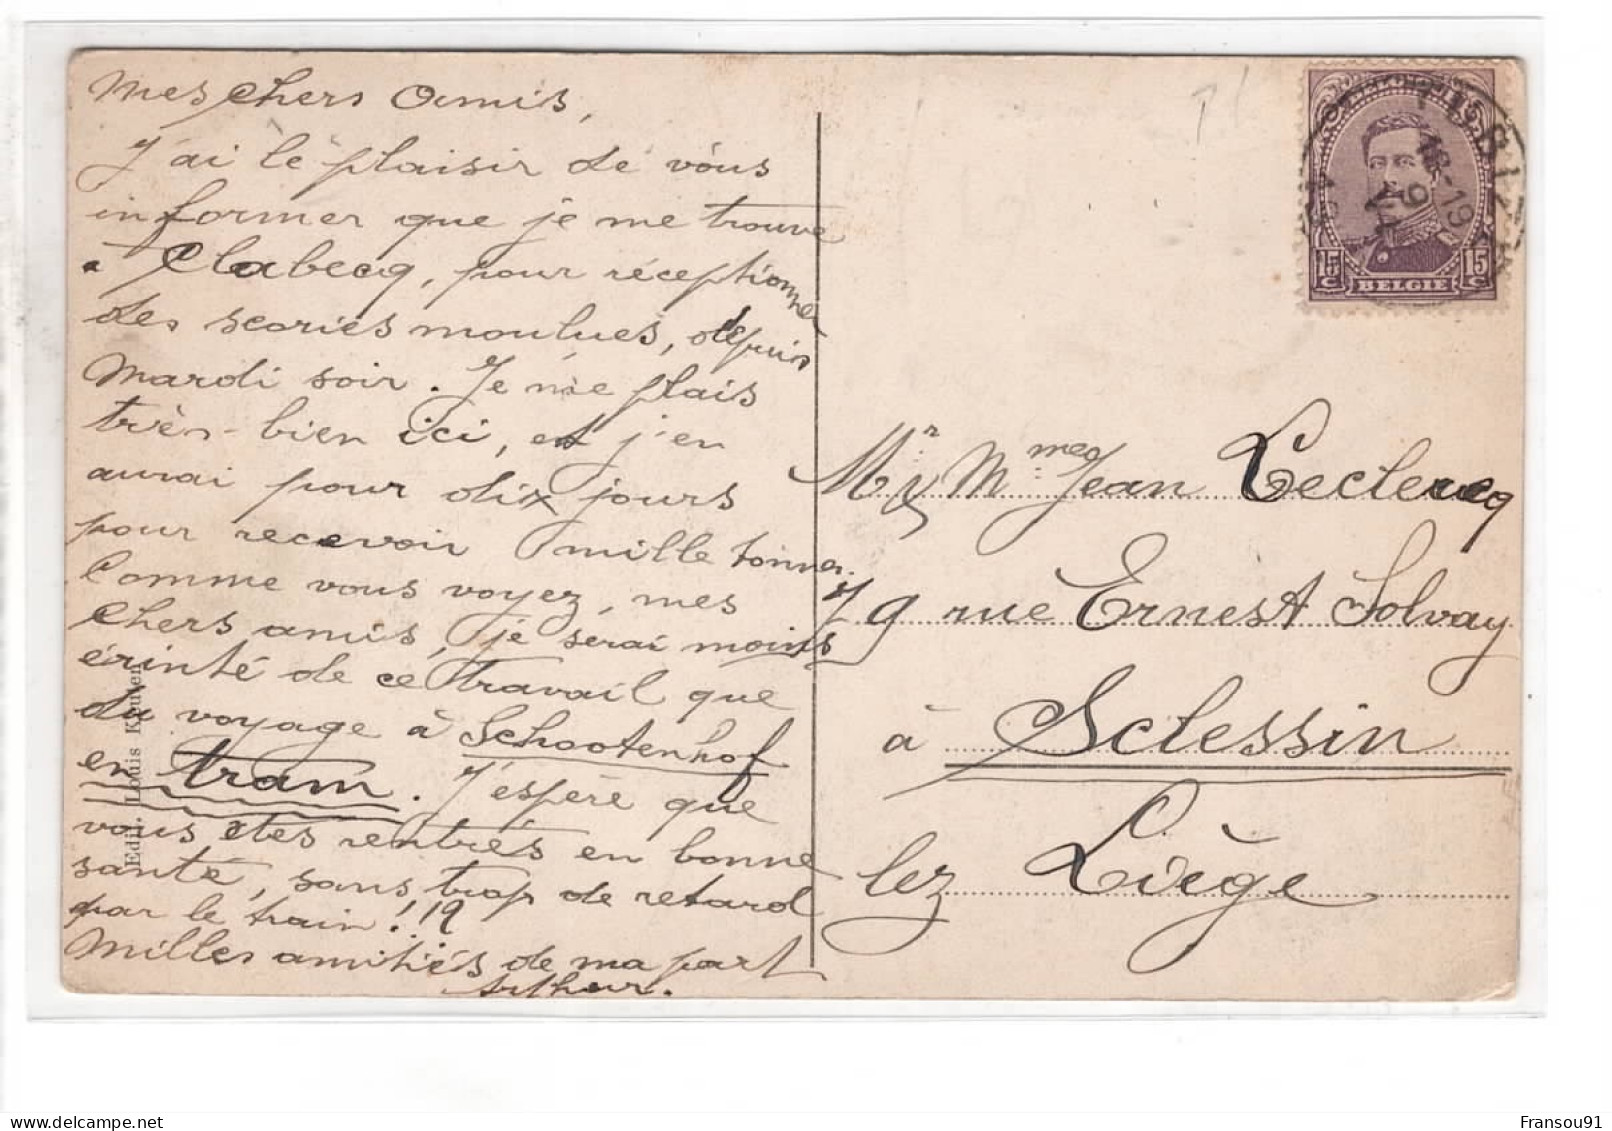 Mes chers Amis,
J'ai le plaisir de vous
informer que je me trouve
a Clabecq, pour réceptionner
des scories moulues, depuis
Mardi soir. Je me plais
très bien ici, et j'en
aurai pour dix jours
pour recevoir mille tonnes.
Comme vous voyez, mes
chers amis, je serai moins
érinté de ce travail que
du voyage à Schootenhof
en tram. J'espère que
vous êtes rentrés en bonne
santé, sans trop de retard
par le train!
Milles amitiés de ma part
Arthur.
Edit. Louis
15c BELGIE 15c
TUBIZE
Mr & Mme Jean Leclercq
79 rue Ernest Solvay
à Sclessin
lez Liège
Fransou91
delcampe.net